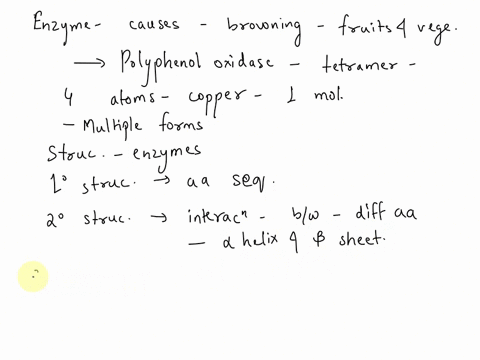 Enzyme - causes - browning - fruits & vege.
→ Polyphenol oxidase - tetramer -
4 atoms - copper - 1 mol.
- Multiple forms
Struc. - enzymes
1° struc. → aa seq.
2° struc. → interacⁿ - b/w - diff aa
- α helix & β sheet.